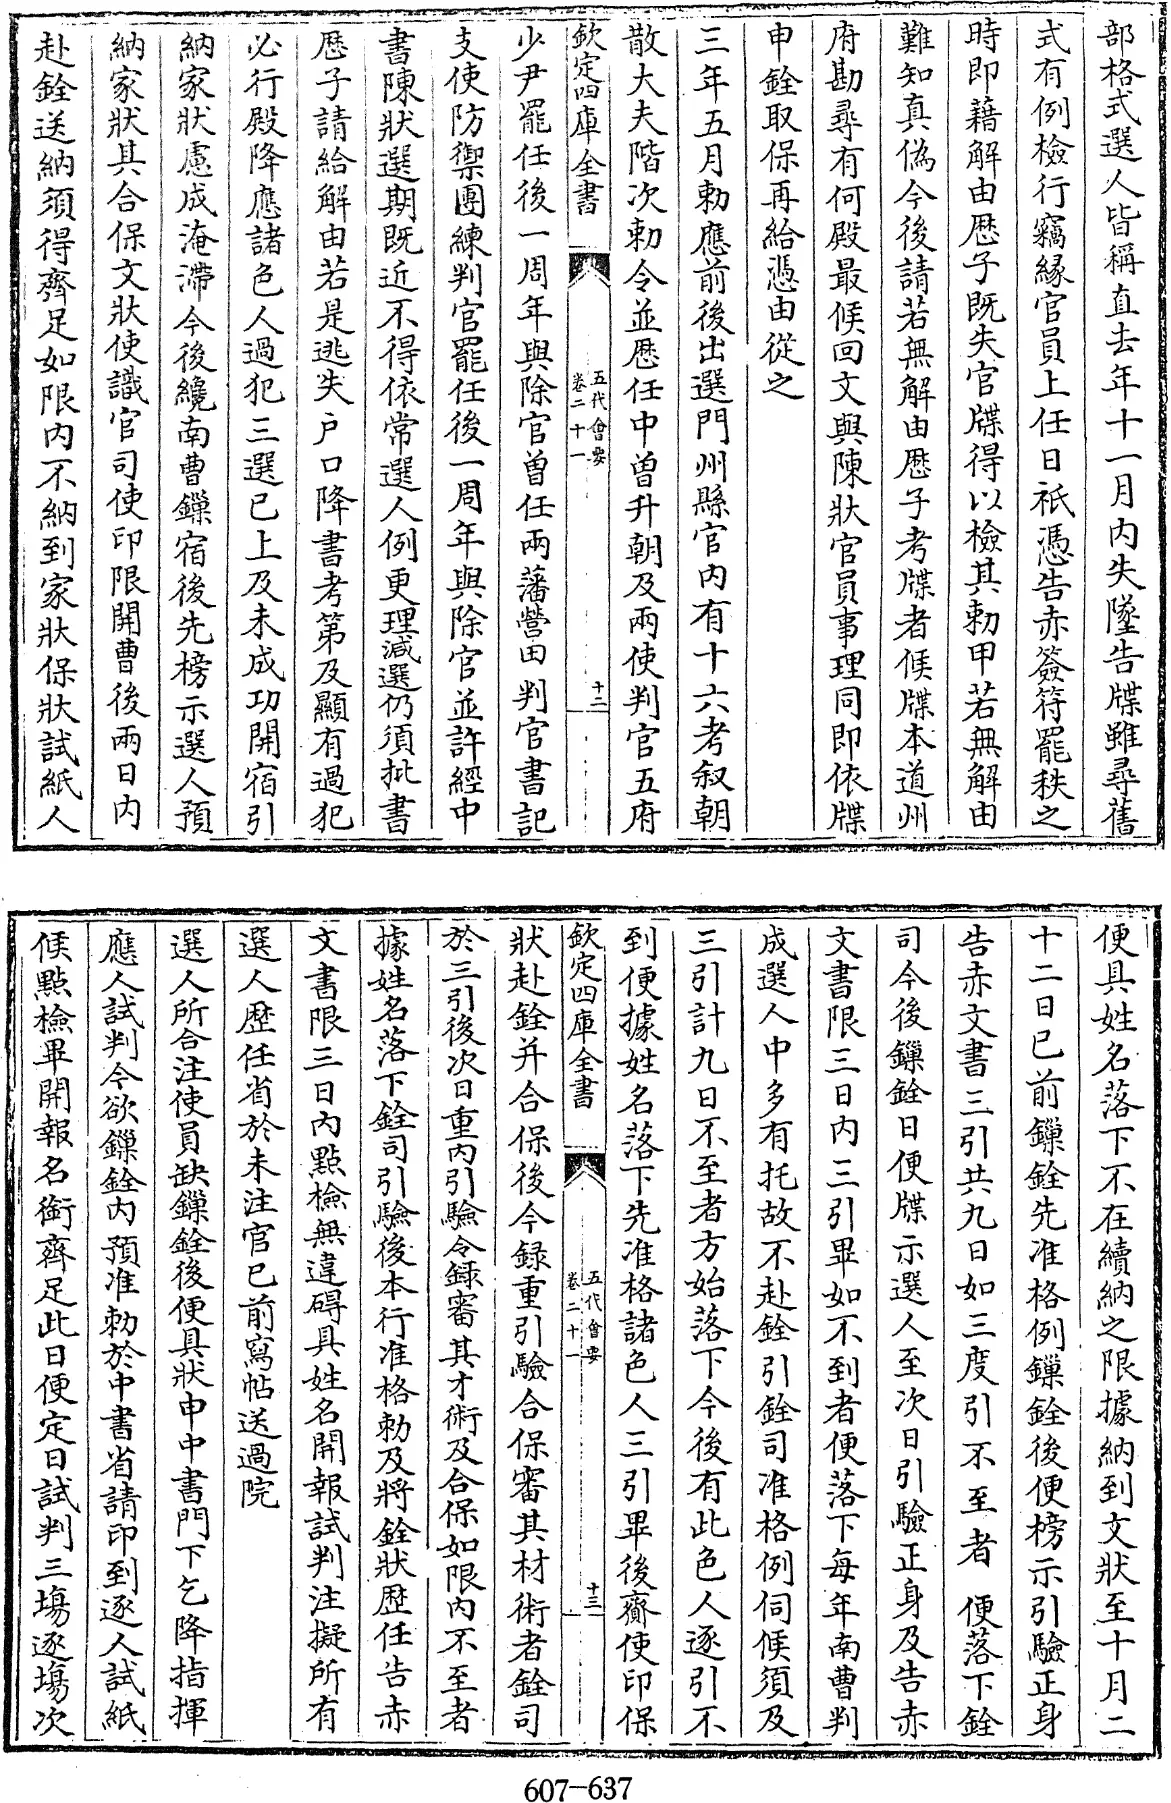 部格式選人皆稱直去年十一月内失墜告牒雖尋舊
式有例檢行竊緣官員上任日祇憑告赤簽符罷秩之
時即藉解由歴子既失官牒得以檢其勅甲若無解由
難知真偽今後請若無解由歴子考牒者候牒本道州
府勘尋有何殿最候回文與陳狀官員事理同即依牒
申銓取保再給憑由從之
三年五月勅應前後出選門州縣官内有十六考叙朝
散大夫階次勅令並歴任中曾升朝及兩使判官五府
欽定四庫全書
五代會要
卷二十一
十二
少尹罷任後一周年與除官曾任兩藩營田判官書記
支使防禦團練判官罷任後一周年與除官並許經中
書陳狀選期既近不得依常選人例更理減選仍須批書
歴子請給解由若是逃失户口降書考第及顯有過犯
必行殿降應諸色人過犯三選已上及未成功開宿引
納家狀慮成淹滯今後纔南曹鏁宿後先榜示選人預
納家狀其合保文狀使識官司使印限開曹後兩日内
赴銓送納須得齊足如限内不納到家狀保狀試紙人
便具姓名落下不在續納之限據納到文狀至十月二
十二日已前鏁銓先准格例鏁銓後便榜示引驗正身
告赤文書三引共九日如三度引不至者便落下銓
司今後鏁銓日便牒示選人至次日引驗正身及告赤
文書限三日内三引畢如不到者便落下每年南曹判
成選人中多有托故不赴銓引銓司准格例伺候須及
三引計九日不至者方始落下今後有此色人逐引不
到便據姓名落下先准格諸色人三引畢後齎使印保
欽定四庫全書
五代會要
卷二十一
十三
狀赴銓并合保後今録重引驗合保審其材術者銓司
於三引後次日重内引驗令録審其才術及合保如限内不至者
據姓名落下銓司引驗後本行准格勅及將銓狀歴任告赤
文書限三日内點檢無違碍具姓名開報試判注擬所有
選人歴任省於未注官已前寫帖送過院
選人所合注使員缺鏁銓後便具狀申中書門下乞降指揮
應人試判今欲鏁銓内預准勅於中書省請印到逐人試紙
候點檢畢開報名銜齊足此日便定日試判三塲逐塲次
607-637